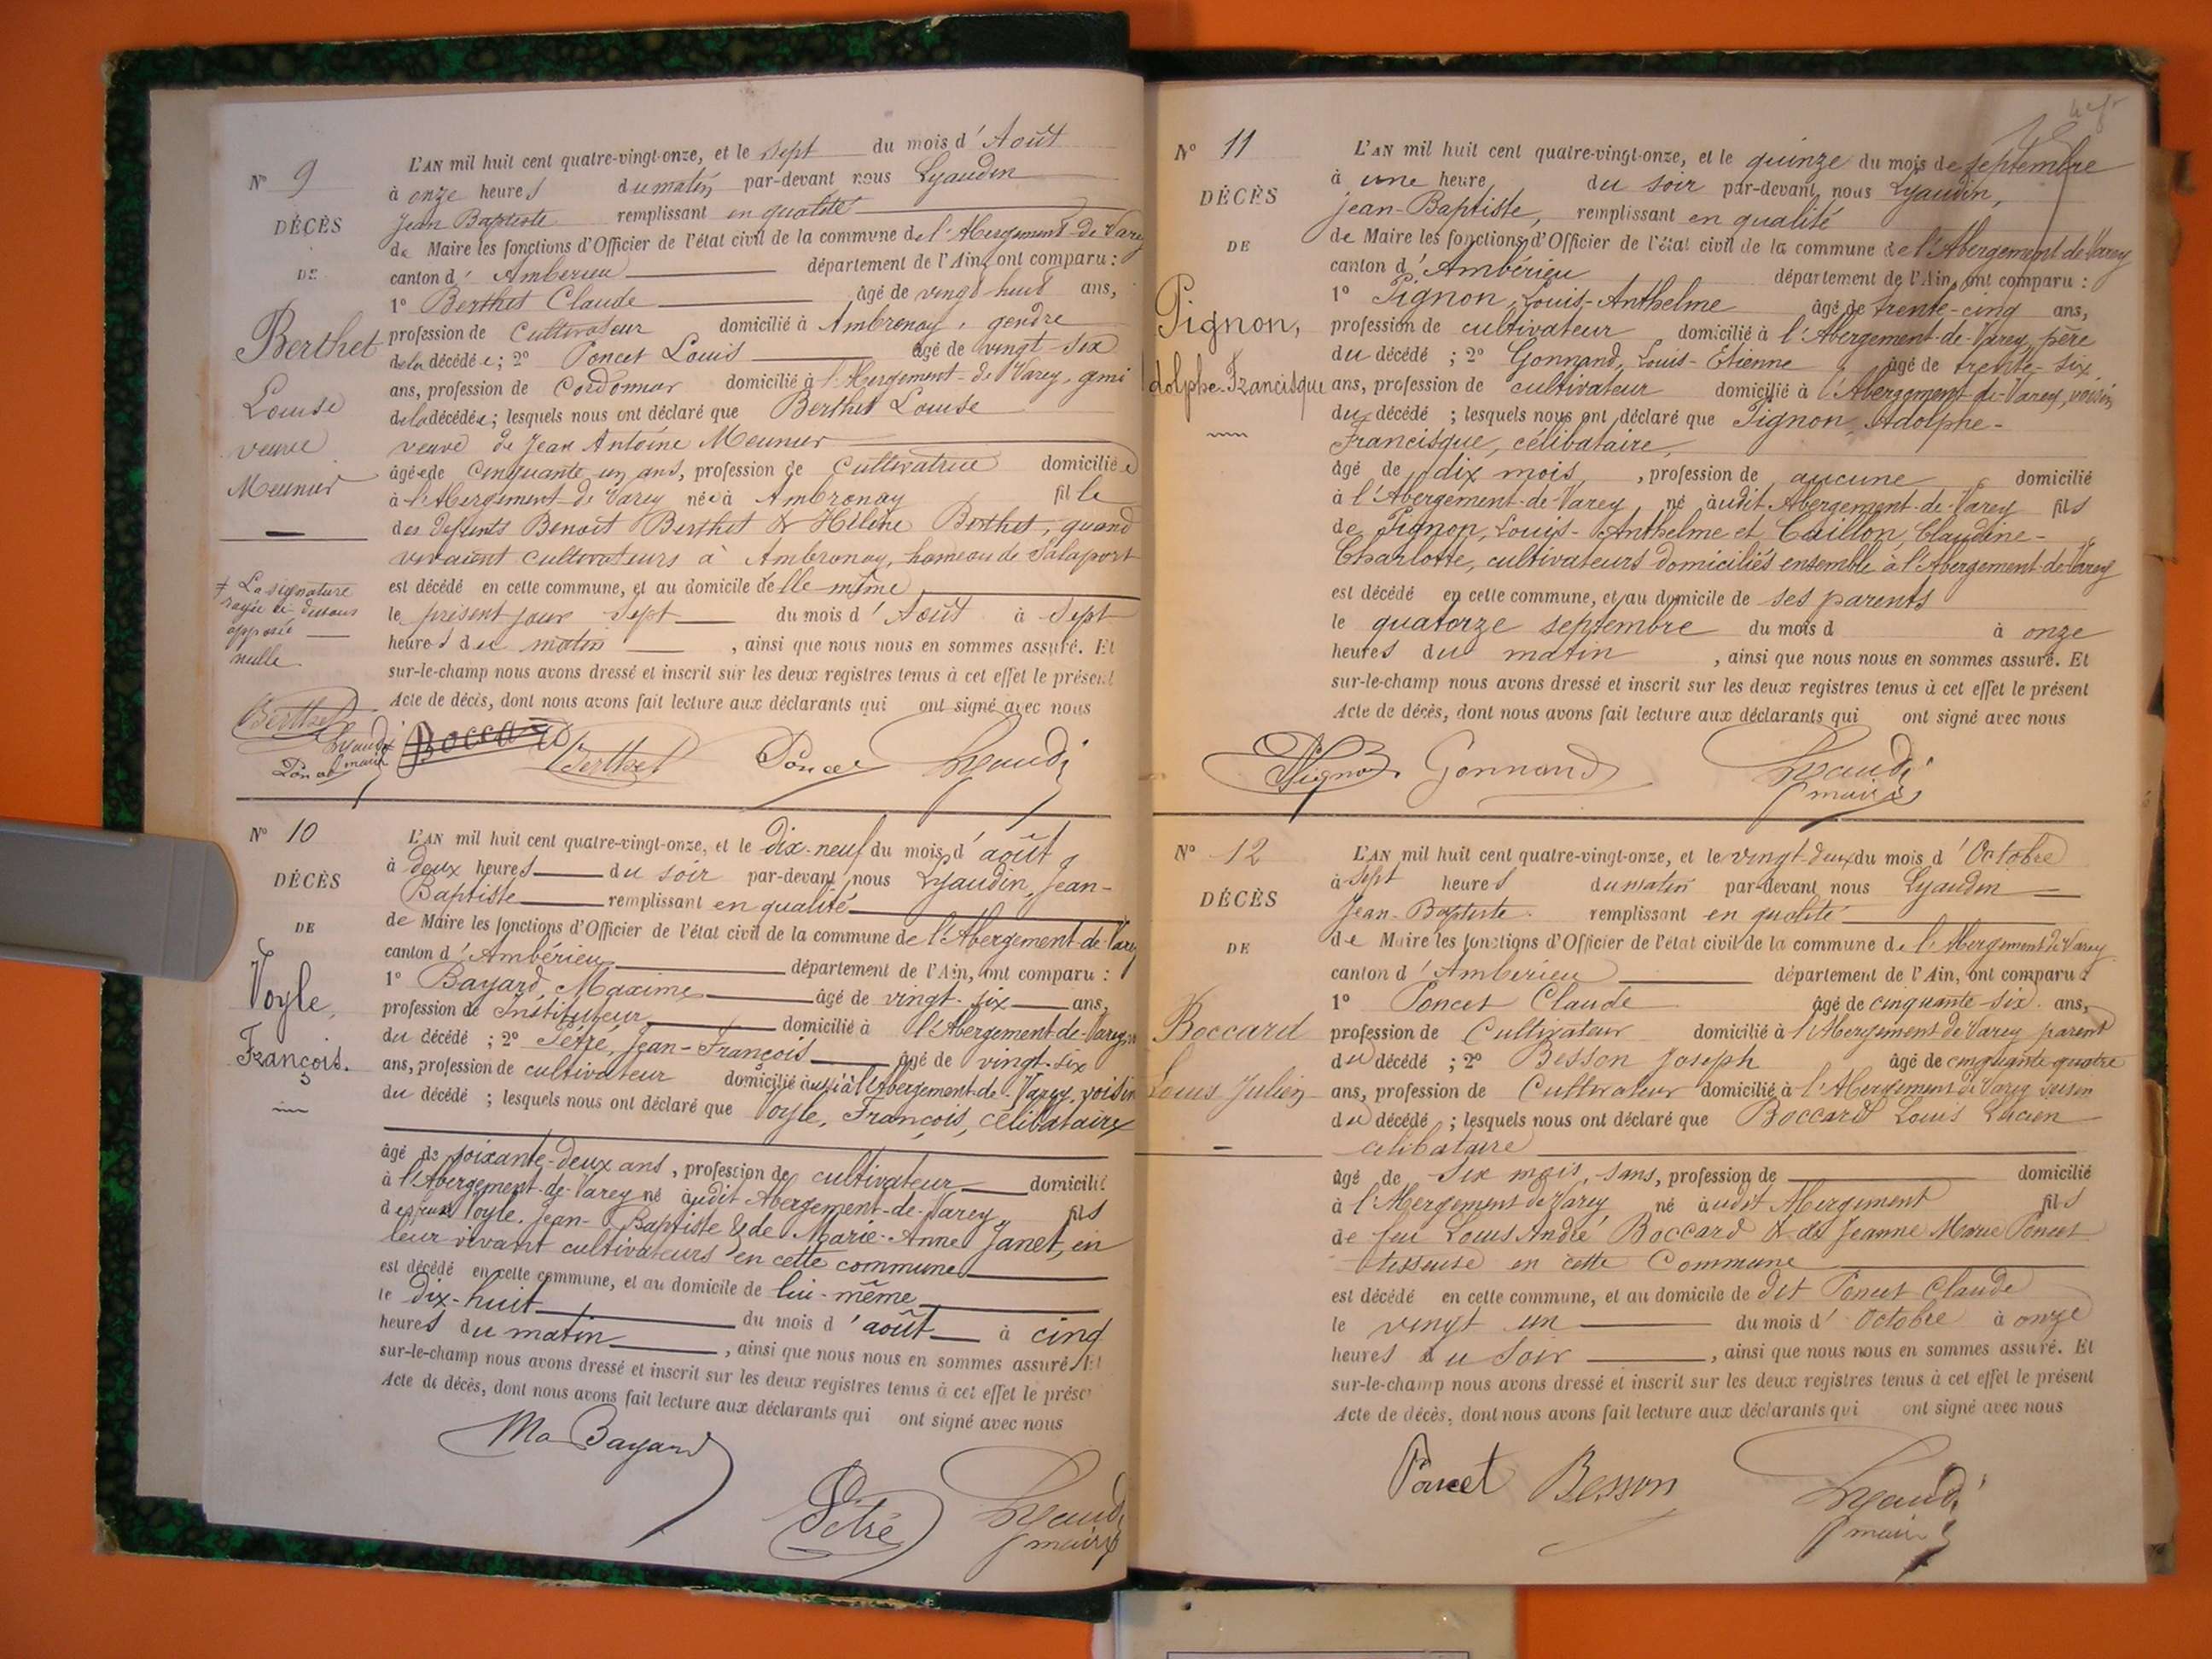 N° 9
DÉCÈS
DE
Berthet
Louise
veuve
Meunier
L'AN mil huit cent quatre-vingt-onze, et le sept du mois d'Août
à onze heures du matin par-devant nous Lyaudin
Jean Baptiste remplissant en qualité
de Maire les fonctions d'Officier de l'état civil de la commune de l'Abergement-de-Varey
canton d'Amberieu département de l'Ain, ont comparu :
1° Berthet Claude âgé de vingt huit ans,
profession de Cultivateur domicilié à Ambronay, gendre
de la décédée ; 2° Poncet Louis âgé de vingt-six
ans, profession de Cordonnier domicilié à l'Abergement-de Varey, ami
de la décédée ; lesquels nous ont déclaré que Berthet Louise
veuve de Jean Antoine Meunier
âgée de Cinquante un ans, profession de Cultivatrice domiciliée
à l'Abergement-de Varey née à Ambronay fille
des defunts Benoit Berthet & Hélène Berthet, quand
vivaient cultivateurs à Ambronay, hameau de Salaport
est décédé en cette commune, et au domicile d'elle-même
le présent jour sept du mois d'Août à sept
heures du matin , ainsi que nous nous en sommes assuré. Et
sur-le-champ nous avons dressé et inscrit sur les deux registres tenus à cet effet le présent
Acte de décès, dont nous avons fait lecture aux déclarants qui ont signé avec nous
La signature
rayée ci-dessous
apposée
nulle
Berthet
Lyaudin
maire
Poncet
Boccard Berthet Poncet Lyaudin
N° 10
DÉCÈS
DE
Voyle,
François.
L'AN mil huit cent quatre-vingt-onze, et le dix-neuf du mois d'août
à deux heures du soir par-devant nous Lyaudin, Jean-
Baptiste remplissant en qualité
de Maire les fonctions d'Officier de l'état civil de la commune de l'Abergement-de-Varey
canton d'Ambérieu département de l'Ain, ont comparu :
1° Bayard Maxime âgé de vingt-six ans,
profession de Instituteur domicilié à l'Abergement-de-Varey,
du décédé ; 2° Pétré, Jean-François âgé de vingt-six
ans, profession de cultivateur domicilié aussi à l'Abergement-de-Varey, voisin
du décédé ; lesquels nous ont déclaré que Voyle, François, célibataire
âgé de soixante-deux ans, profession de cultivateur domicilié
à l'Abergement-de-Varey né àudit Abergement-de-Varey fils
de feux Voyle, Jean-Baptiste & de Marie-Anne Janet, en
leur vivant cultivateurs en cette commune
est décédé en cette commune, et au domicile de lui-même
le dix-huit du mois d'août à cinq
heures du matin , ainsi que nous nous en sommes assuré. Et
sur-le-champ nous avons dressé et inscrit sur les deux registres tenus à cet effet le présent
Acte de décès, dont nous avons fait lecture aux déclarants qui ont signé avec nous
Ma Bayard
Pétré Lyaudin
maire
N° 11
DÉCÈS
DE
Pignon,
dolphe-Francisque
L'AN mil huit cent quatre-vingt-onze, et le quinze du mois de septembre
à une heure du soir par-devant nous Lyaudin,
Jean-Baptiste, remplissant en qualité
de Maire les fonctions d'Officier de l'état civil de la commune de l'Abergement de Varey
canton d'Ambérieu département de l'Ain, ont comparu :
1° Pignon, Louis-Anthelme âgé de trente-cinq ans,
profession de cultivateur domicilié à l'Abergement-de-Varey, père
du décédé ; 2° Gonnand, Louis-Etienne âgé de trente-six
ans, profession de cultivateur domicilié à l'Abergement-de-Varey, voisin
du décédé ; lesquels nous ont déclaré que Pignon, Adolphe-
Francisque, célibataire,
âgé de dix mois, profession de aucune domicilié
à l'Abergement-de-Varey, né àudit Abergement-de-Varey fils
de Pignon, Louis-Anthelme et Caillon, Claudine-
Charlotte, cultivateurs domiciliés ensemble à l'Abergement-de-Varey
est décédé en cette commune, et au domicile de ses parents
le quatorze septembre du mois d à onze
heures du matin , ainsi que nous nous en sommes assuré. Et
sur-le-champ nous avons dressé et inscrit sur les deux registres tenus à cet effet le présent
Acte de décès, dont nous avons fait lecture aux déclarants qui ont signé avec nous
Pignon Gonnand Lyaudin
maire
N° 12
DÉCÈS
DE
Boccard
Louis Julien
L'AN mil huit cent quatre-vingt-onze, et le vingt-deux du mois d'Octobre
à sept heures du matin par-devant nous Lyaudin
Jean-Baptiste remplissant en qualité
de Maire les fonctions d'Officier de l'état civil de la commune de l'Abergement de Varey
canton d'Ambérieu département de l'Ain, ont comparu :
1° Poncet Claude âgé de cinquante-six ans,
profession de Cultivateur domicilié à l'Abergement de Varey parent
du décédé ; 2° Besson Joseph âgé de cinquante quatre
ans, profession de Cultivateur domicilié à l'Abergement de Varey voisin
du décédé ; lesquels nous ont déclaré que Boccard Louis Lucien
celibataire
âgé de Six mois, sans, profession de domicilié
à l'Abergement de Varey né àudit Abergement fils
de feu Louis André Boccard & de Jeanne Marie Poncet
tisseuse en cette Commune
est décédé en cette commune, et au domicile de dit Poncet Claude
le vingt un du mois d'Octobre à onze
heures du Soir , ainsi que nous nous en sommes assuré. Et
sur-le-champ nous avons dressé et inscrit sur les deux registres tenus à cet effet le présent
Acte de décès, dont nous avons fait lecture aux déclarants qui ont signé avec nous
Poncet Besson Lyaudin
maire